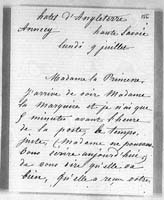 hotel d'Angleterre
Annecy haute Savoie
lundi 9 juillet
Madame la Princesse,
J'arrive de voir Madame
la Marquise et je n'ai que
5 minutes avant l'heure
de la poste, le temps
juste, (Madame ne pouvant
vous écrire aujourd'hui) de
vous dire qu'elle va
bien, qu'elle a reçu votre